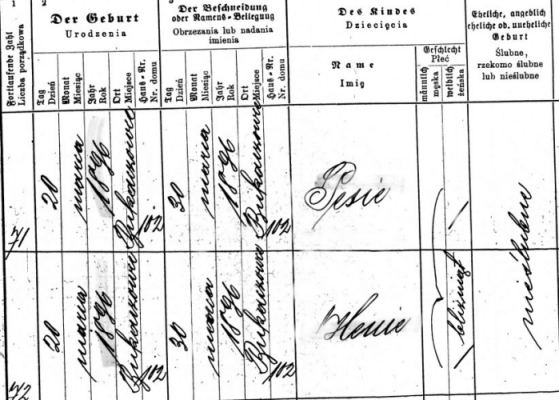 1
2
Fortlaufende Zahl
Liczba porządkowa
Der Geburt
Urodzenia
Tag
Dzień
Monat
Miesiąc
Jahr
Rok
Ort
Miejsce
Haus-Nr.
Nr. domu
Der Beschneidung
oder Namens-Beilegung
Obrzezania lub nadania
imienia
Tag
Dzień
Monat
Miesiąc
Jahr
Rok
Ort
Miejsce
Haus-Nr.
Nr. domu
Des Kindes
Dziecięcia
Name
Imię
Geschlecht
Płeć
männlich
męska
weiblich
żeńska
Eheliche, angeblich
eheliche od. uneheliche
Geburt
Ślubne,
rzekomo ślubne
lub nieślubne
71
20
marca
1896
Bukaczowce
102
30
marca
1896
Bukaczowce
102
Pesie
72
20
marca
1896
Bukaczowce
102
30
marca
1896
Bukaczowce
102
Henie
bliźnięt
nieślubne